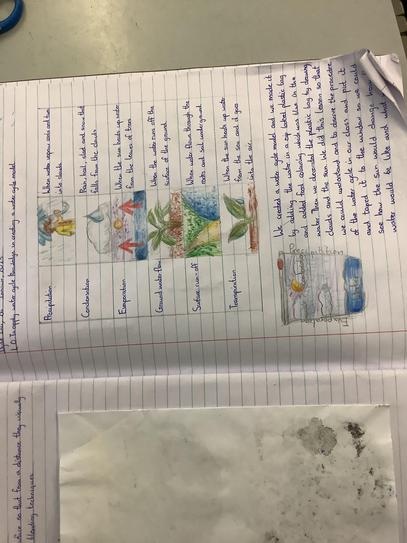 L.O. To apply water cycle knowledge in creating a water cycle model
Precipitation
When water vapour cools and turns
into clouds
Condensation
Rain, hail, sleet and snow that
falls from the clouds
Evaporation
When the sun heats up water
from the leaves of trees
Ground water flow
When the water runs off the
surface of the ground
Surface run off
When water flows through the
rocks and soil underground
Transpiration
When the sun heats up water
from the sea and it goes
into the air
We created a water cycle model and we made it
by adding the water in a zip locked plastic bag
and added food colouring which was blue in the
water. Then we decorated the plastic bag by drawing
clouds and the sun. We did this lesson so that
we could understand and to observe the procedure
of the water cycle in our class and put it
and taped it to the window so we could
see how the sun would change how
water would be like and what
Precipitation
Evaporation
surface so that from a distance they visually
blending techniques.